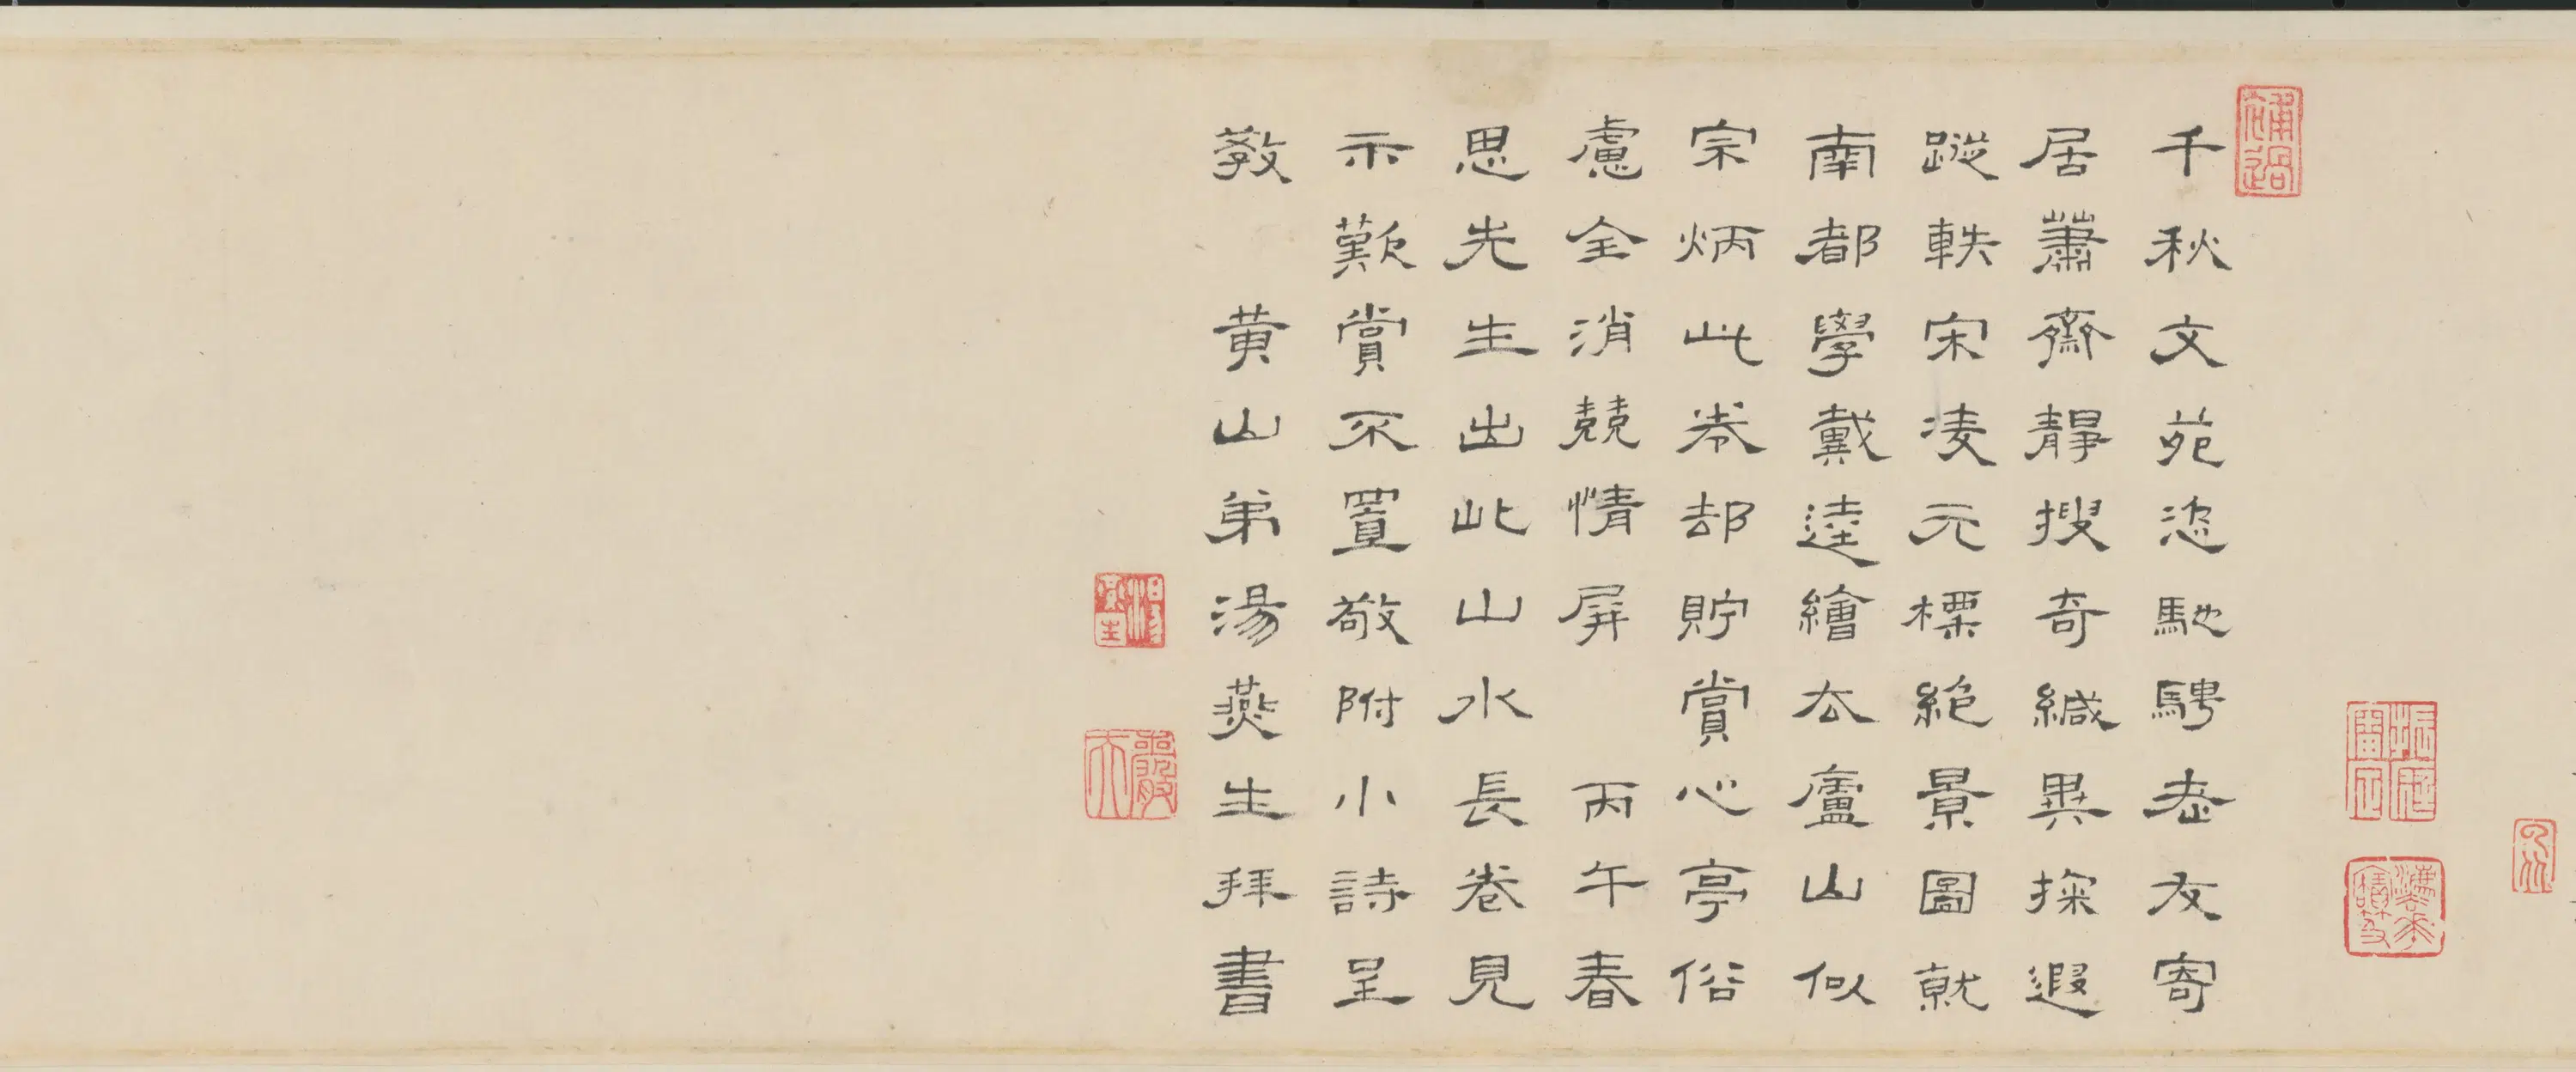 千秋文苑恣馳騁老友寄
居蕭齋靜搜奇緘異探遐
蹤軼宋凌元標絕景圖就
南都學戴逵繪厺廬山似
宗炳此卷却貯賞心亭俗
慮全消競情屏 丙午春
思先生出此山水長卷見
示歎賞不置敬附小詩呈
教 黄山弟湯燕生拜書